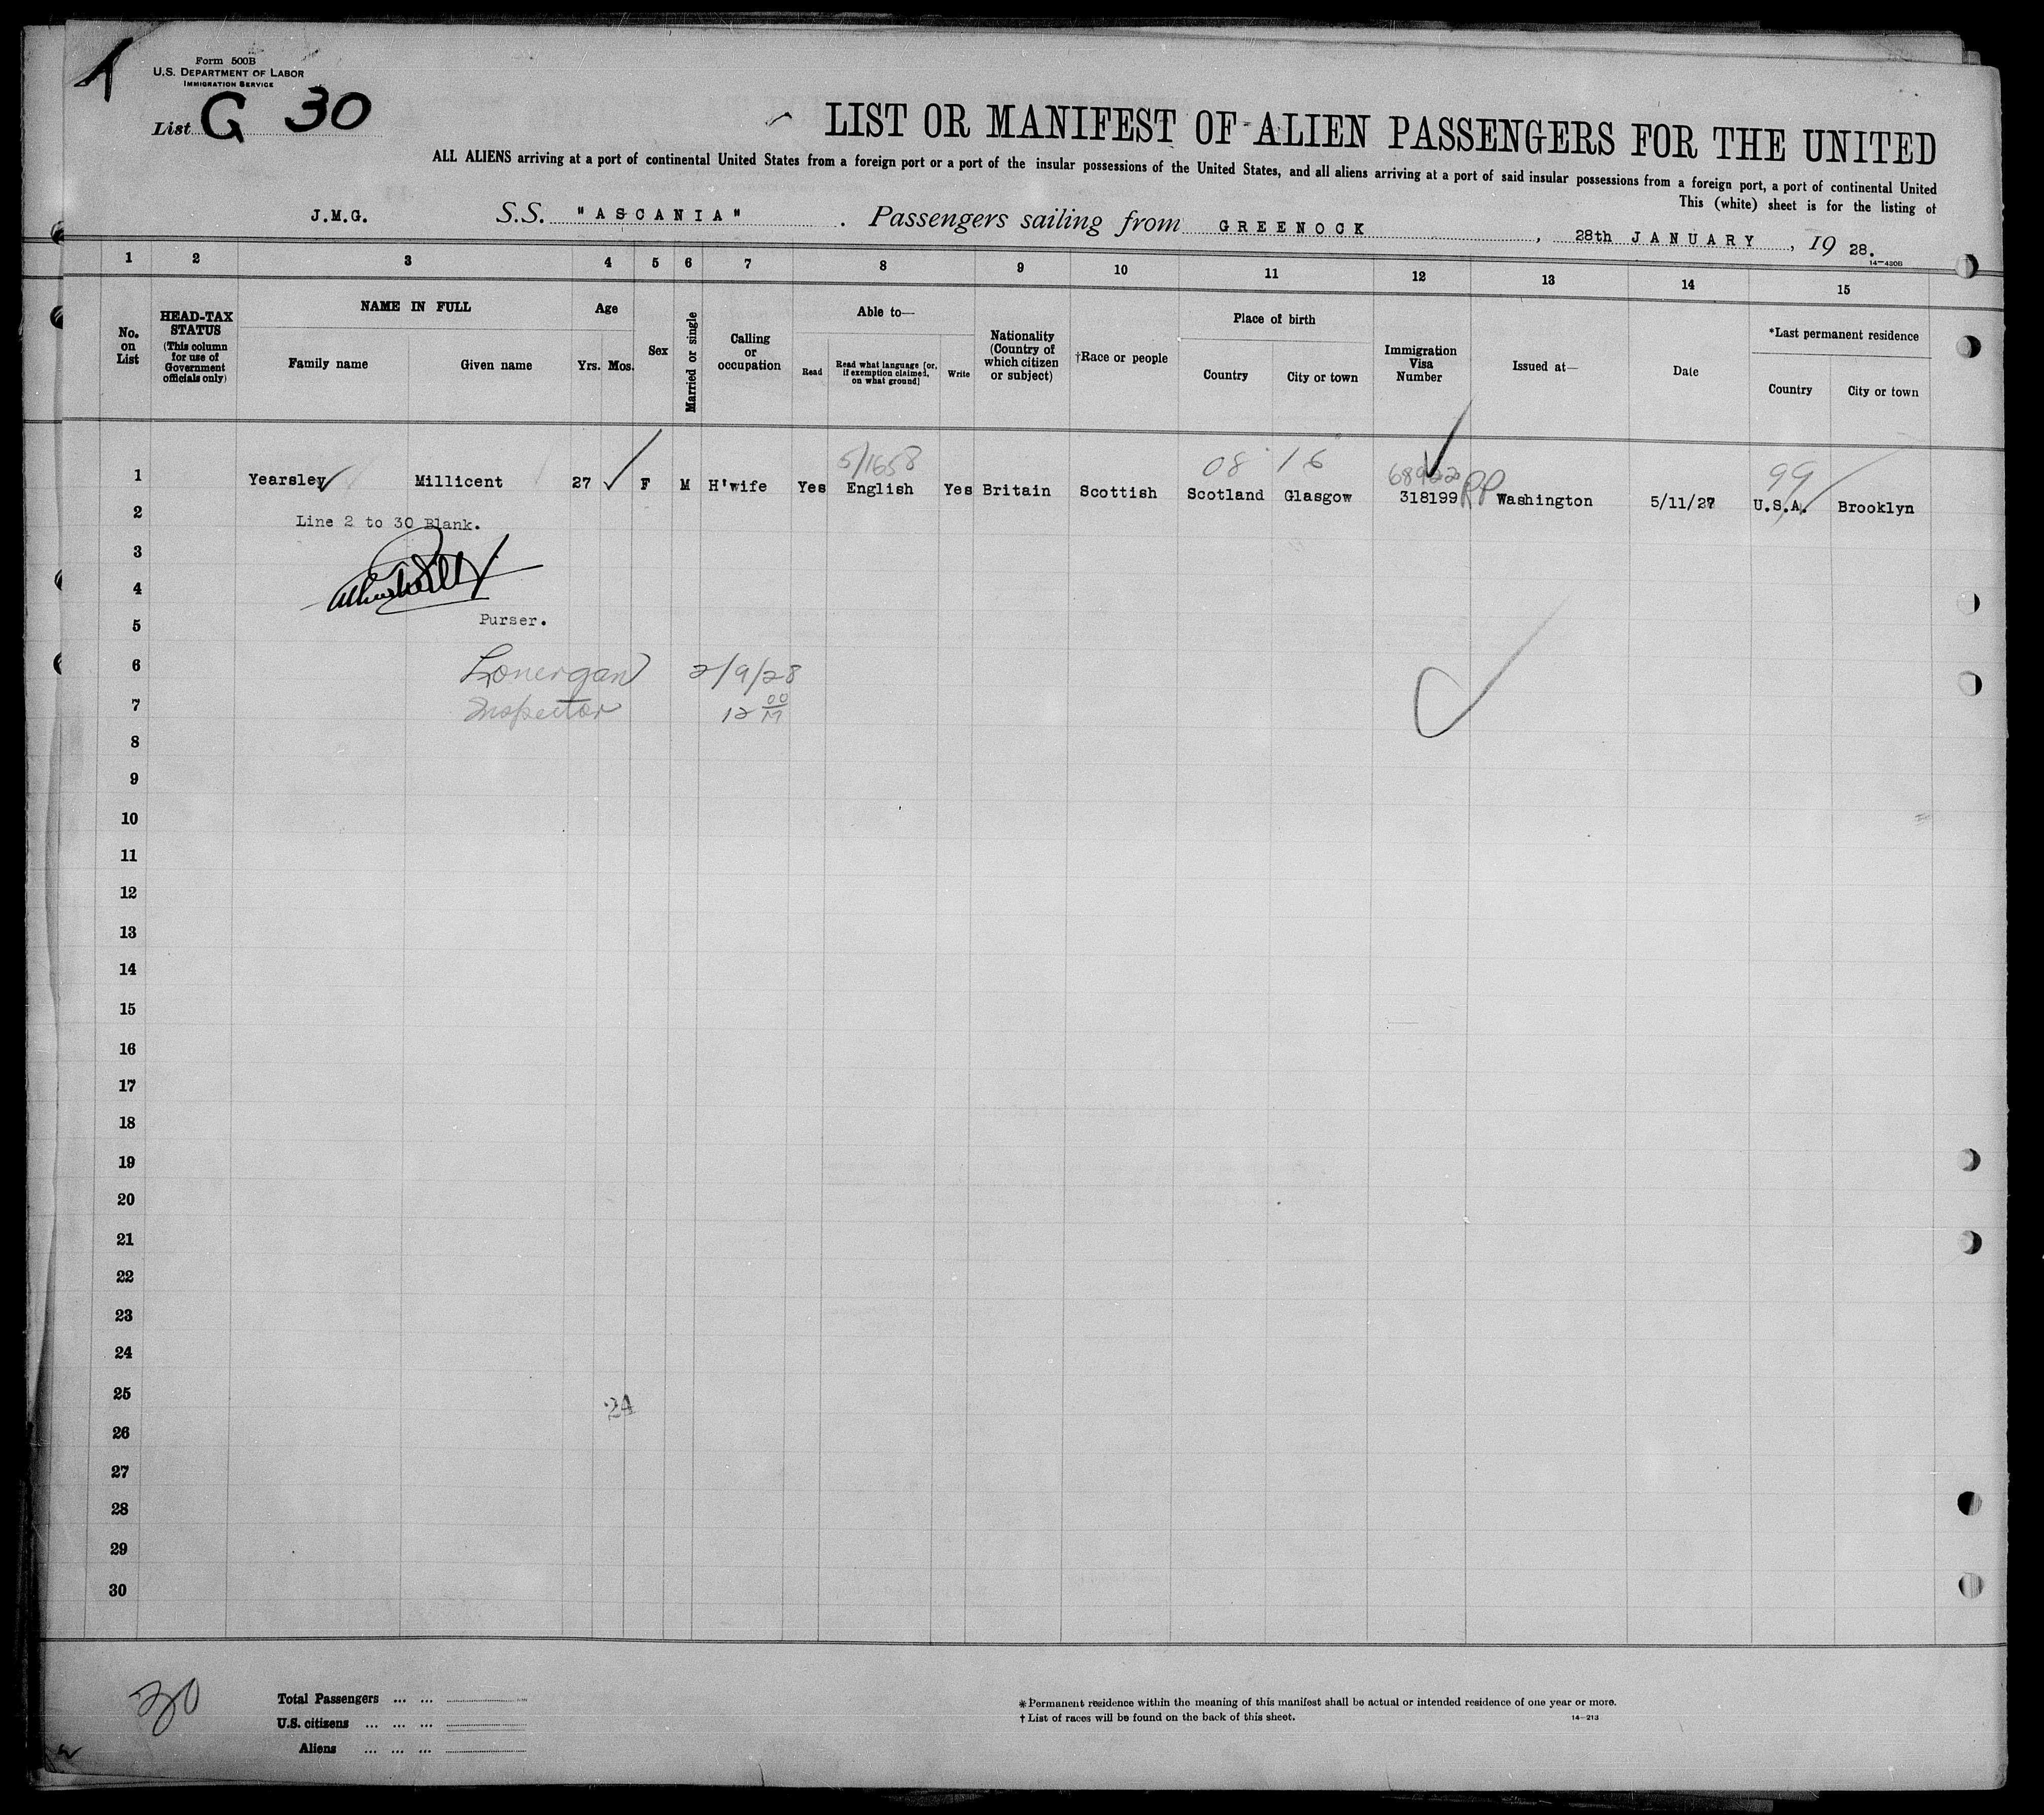 Form 500B
U.S. DEPARTMENT OF LABOR
IMMIGRATION SERVICE
List G 30
LIST OR MANIFEST OF ALIEN PASSENGERS FOR THE UNITED
ALL ALIENS arriving at a port of continental United States from a foreign port or a port of the insular possessions of the United States, and all aliens arriving at a port of said insular possessions from a foreign port, a port of continental United
This (white) sheet is for the listing of
J.M.G. S.S. "ASCANIA". Passengers sailing from GREENOCK, 28th JANUARY, 19 28.
14—430B
1 2 3 4 5 6 7 8 9 10 11 12 13 14 15
No. on List
HEAD-TAX STATUS (This column for use of Government officials only)
NAME IN FULL
Family name Given name
Age
Yrs. Mos.
Sex
Married or single
Calling or occupation
Able to—
Read
Read what language [or, if exemption claimed, on what ground]
Write
Nationality (Country of which citizen or subject)
†Race or people
Place of birth
Country City or town
Immigration Visa Number
Issued at—
Date
*Last permanent residence
Country City or town
5/1658 08 16 99
1 Yearsley Millicent 27 F M H'wife Yes English Yes Britain Scottish Scotland Glasgow 318199 RP Washington 5/11/27 U.S.A. Brooklyn
2 Line 2 to 30 Blank.
3
4
5 Purser.
6 Lonergan 2/9/28
7 Inspector 12 00 M
8
9
10
11
12
13
14
15
16
17
18
19
20
21
22
23
24
25 24
26
27
28
29
30
Total Passengers ... ...
U.S. citizens ... ... ...
Aliens ... ... ...
*Permanent residence within the meaning of this manifest shall be actual or intended residence of one year or more.
†List of races will be found on the back of this sheet.
14—213